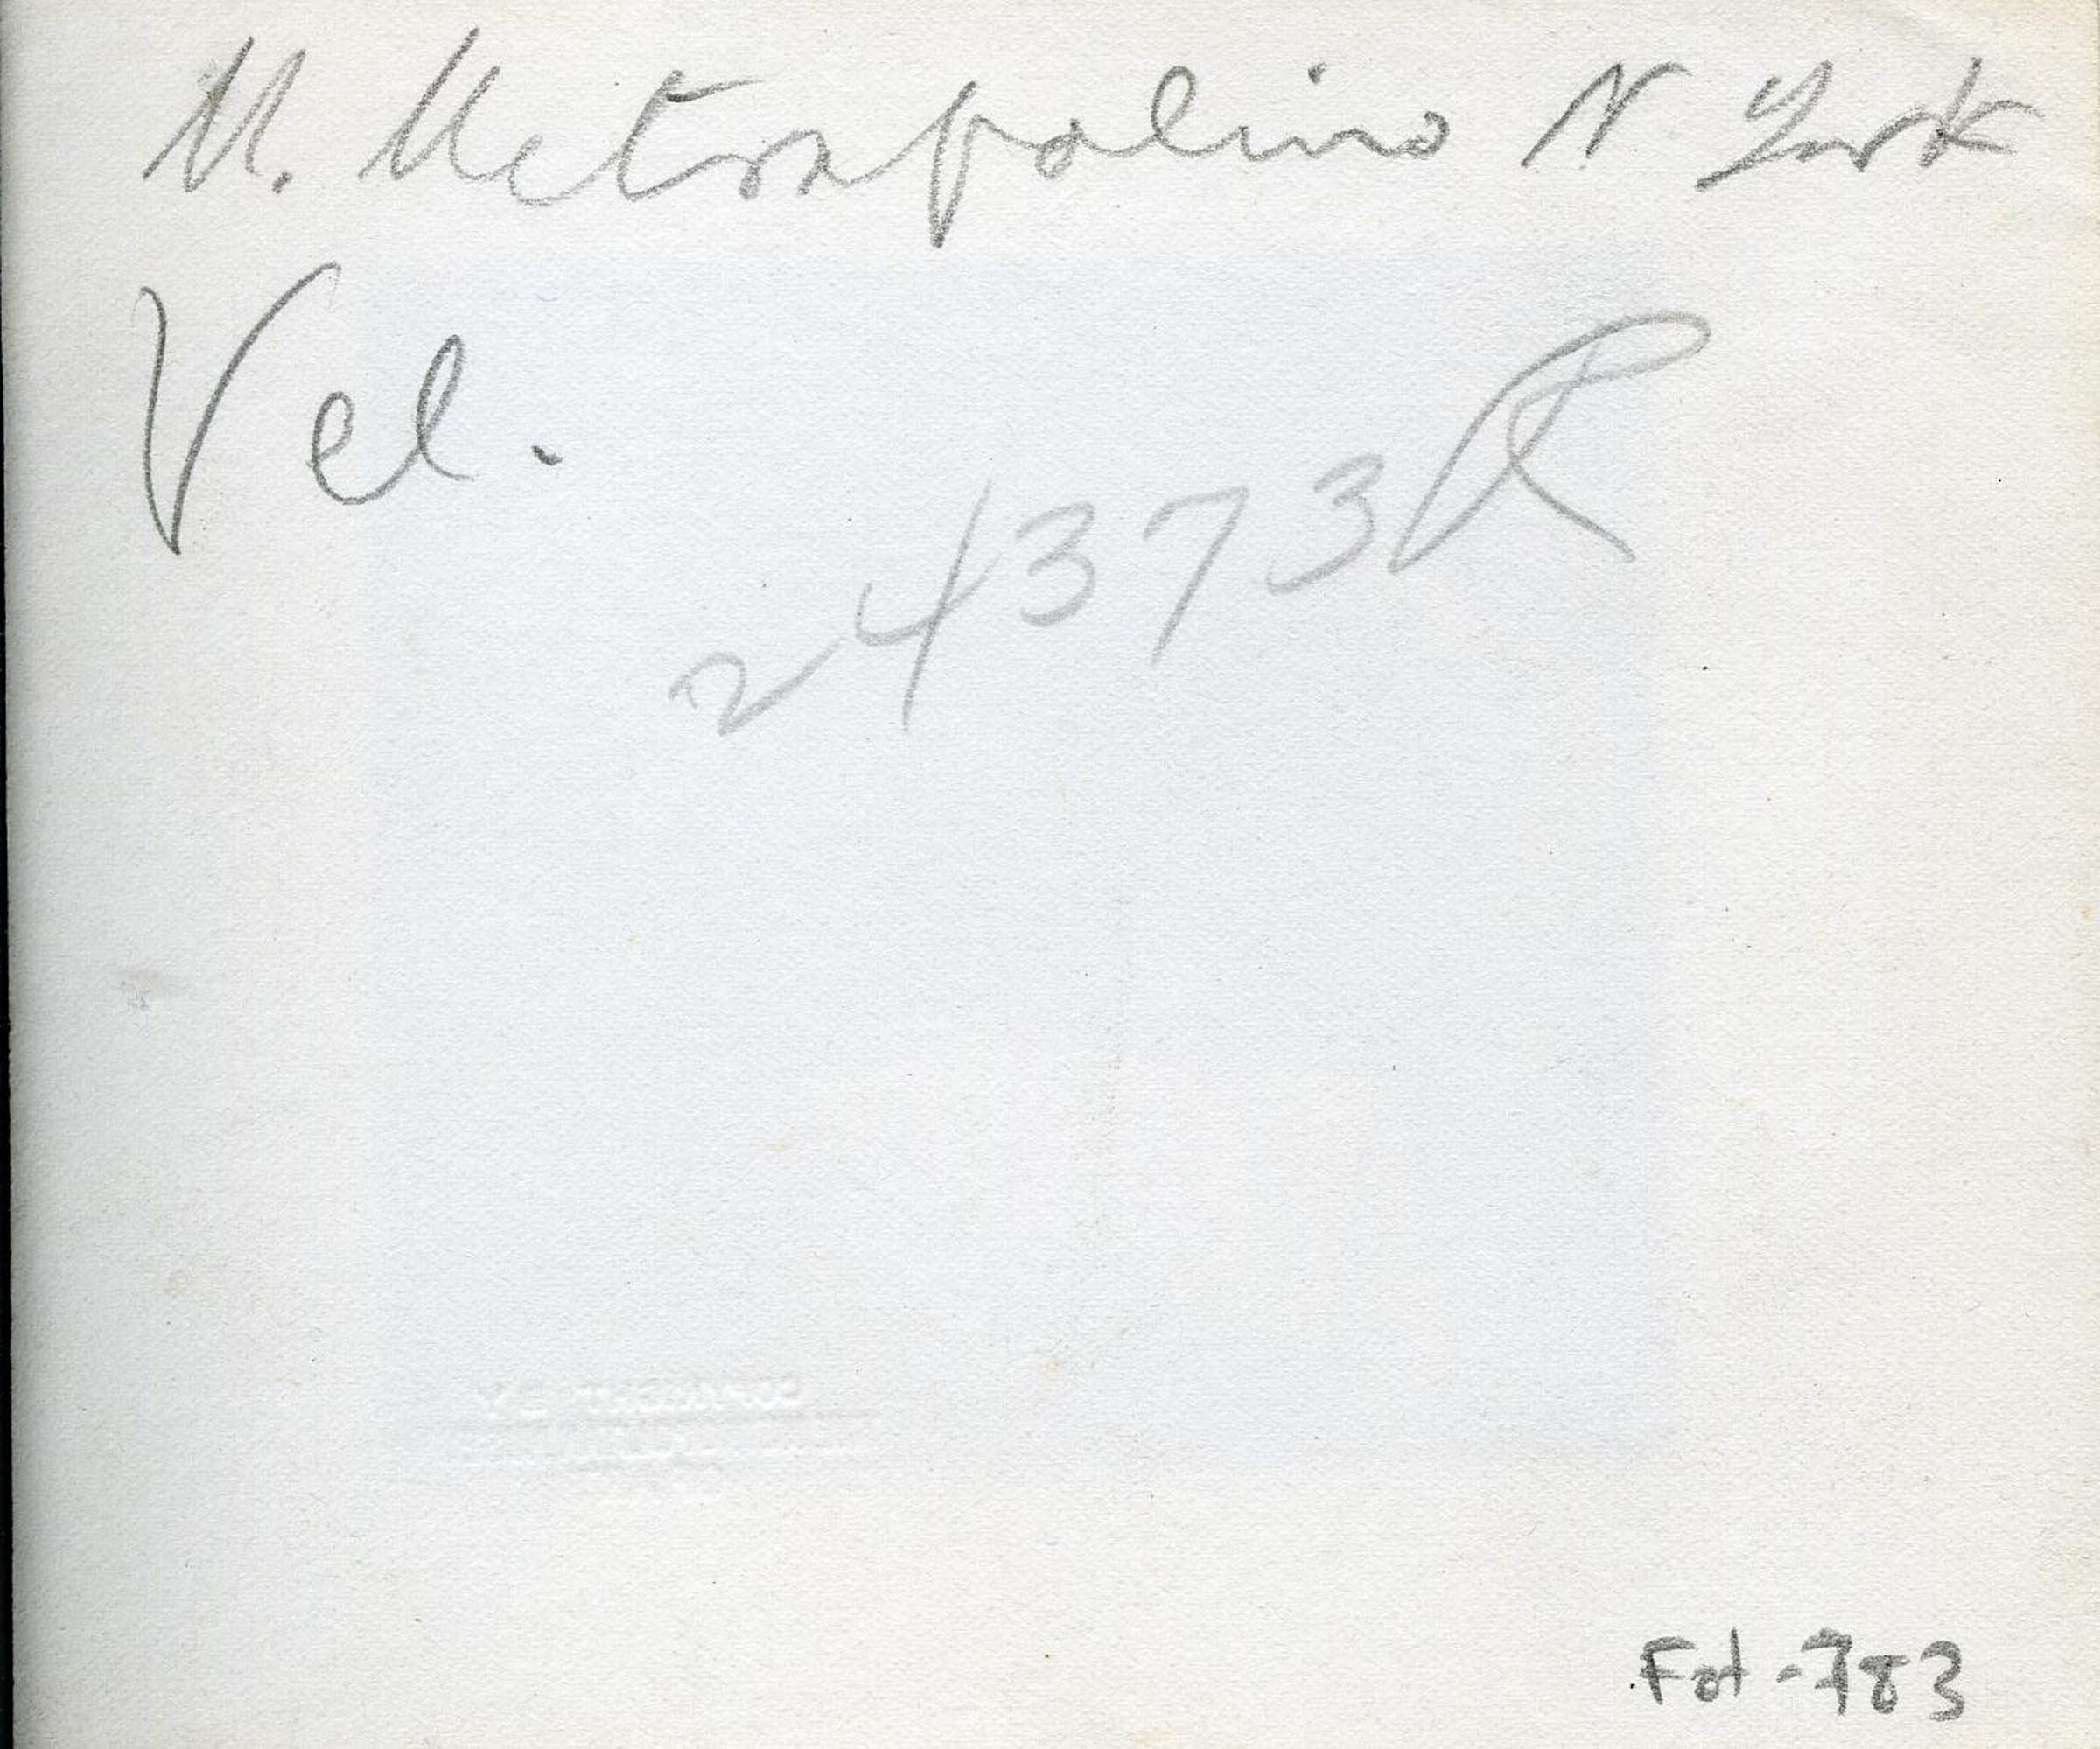 M. Metropolino N York
Vel.
24373R
Fot-783